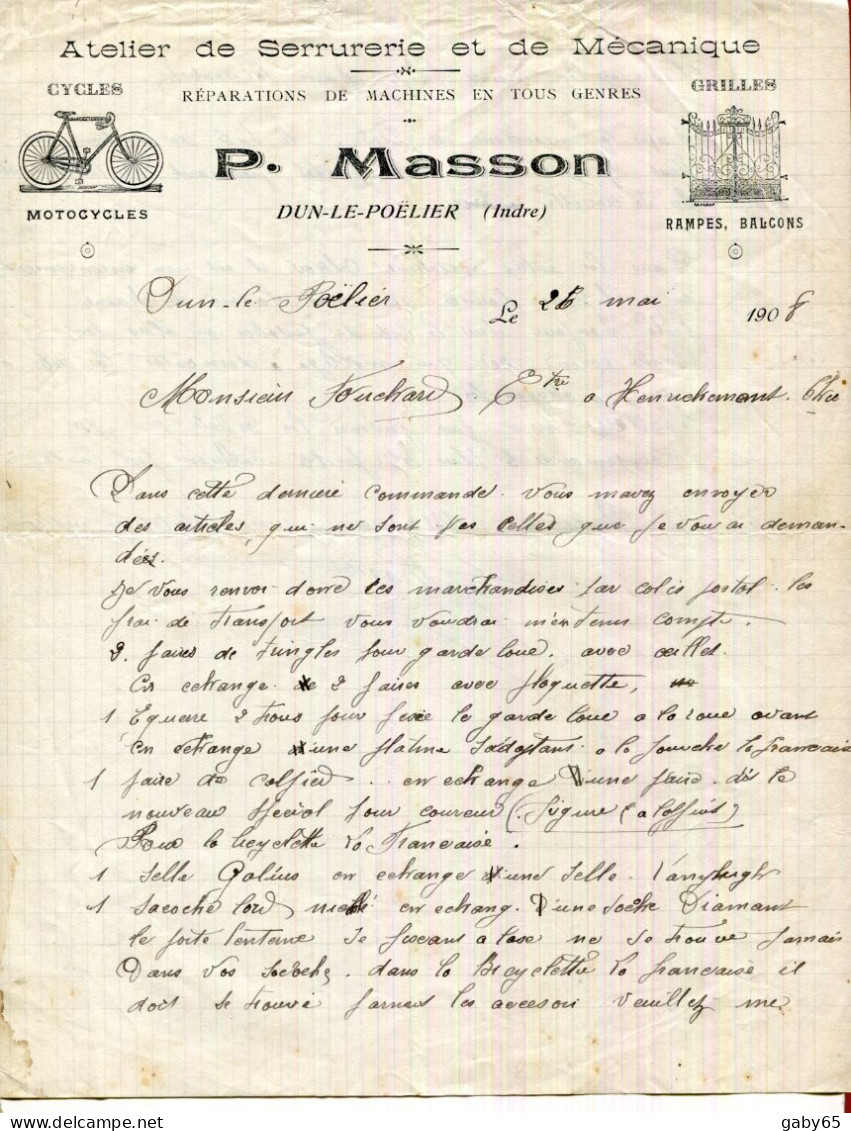 Atelier de Serrurerie et de Mécanique
CYCLES
RÉPARATIONS DE MACHINES EN TOUS GENRES
GRILLES
P. Masson
MOTOCYCLES
DUN-LE-POËLIER (Indre)
RAMPES, BALCONS
Dun-le Poëlier Le mai 1908
Monsieur Fouchard a Henrichemont. Cher
Dans cette dernière commande vous mavez envoyés
des articles qui ne sont pas celles que je vou ai deman-
dées.
Je vous renvoi donc les marchandises par colis postal. les
frai de transport vous voudrai m'en tenir compte.
2 paires de tringles pour garde boue. avec œillet.
En echange de 2 paires avec plaquette,
1 Equerre 2 trous pour fixée le garde boue a la roue avant
En echange d'une platine s'adaptant a la fourche la francaise
1 paire de . . en echange D'une paire. de le
nouveau special pour coureur (figure
Pour la bicyclette la Francaise.
1 Selle en echange d'une selle.
1 sacoche en echang. D'une Diamant
le porte lenterne se fixant a laxe ne se trouve jamais
Dans vos . dans la Bicyclette la francaise il
doit se trouvé les veuillez me
gaby65